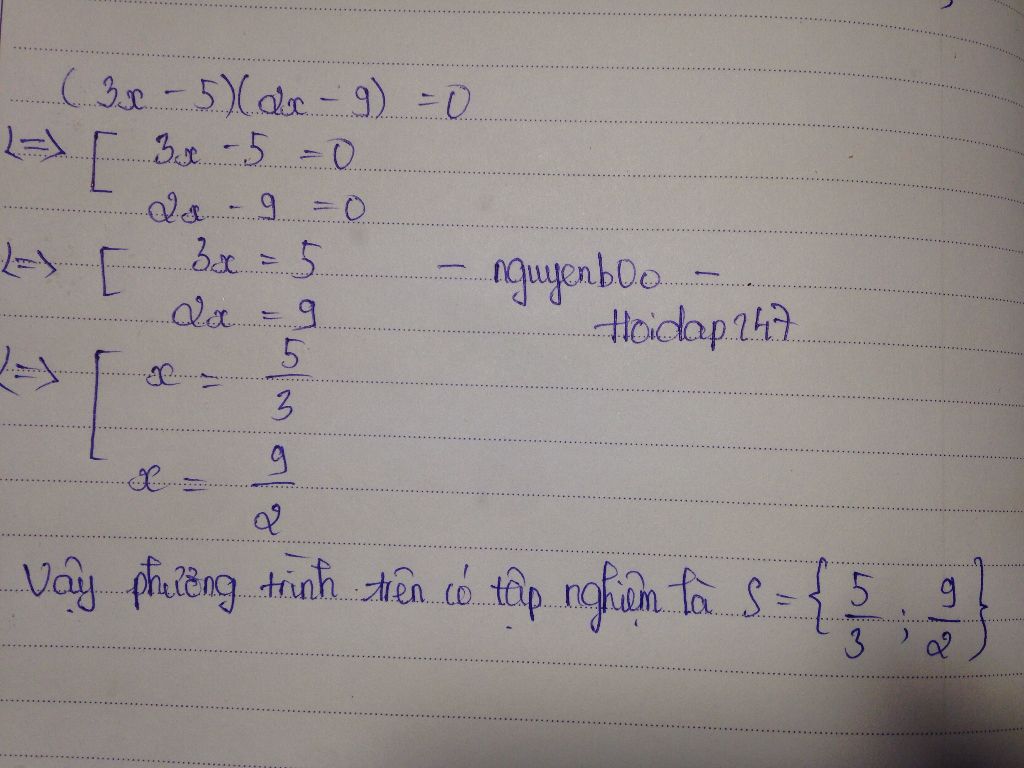 (3x - 5)(2x - 9) = 0
<=> [ 3x - 5 = 0
2x - 9 = 0
<=> [ 3x = 5
2x = 9
- nguyenb00 -
Hoidap247
<=> [ x = 5/3
x = 9/2
Vậy phương trình trên có tập nghiệm là S = { 5/3 ; 9/2 }